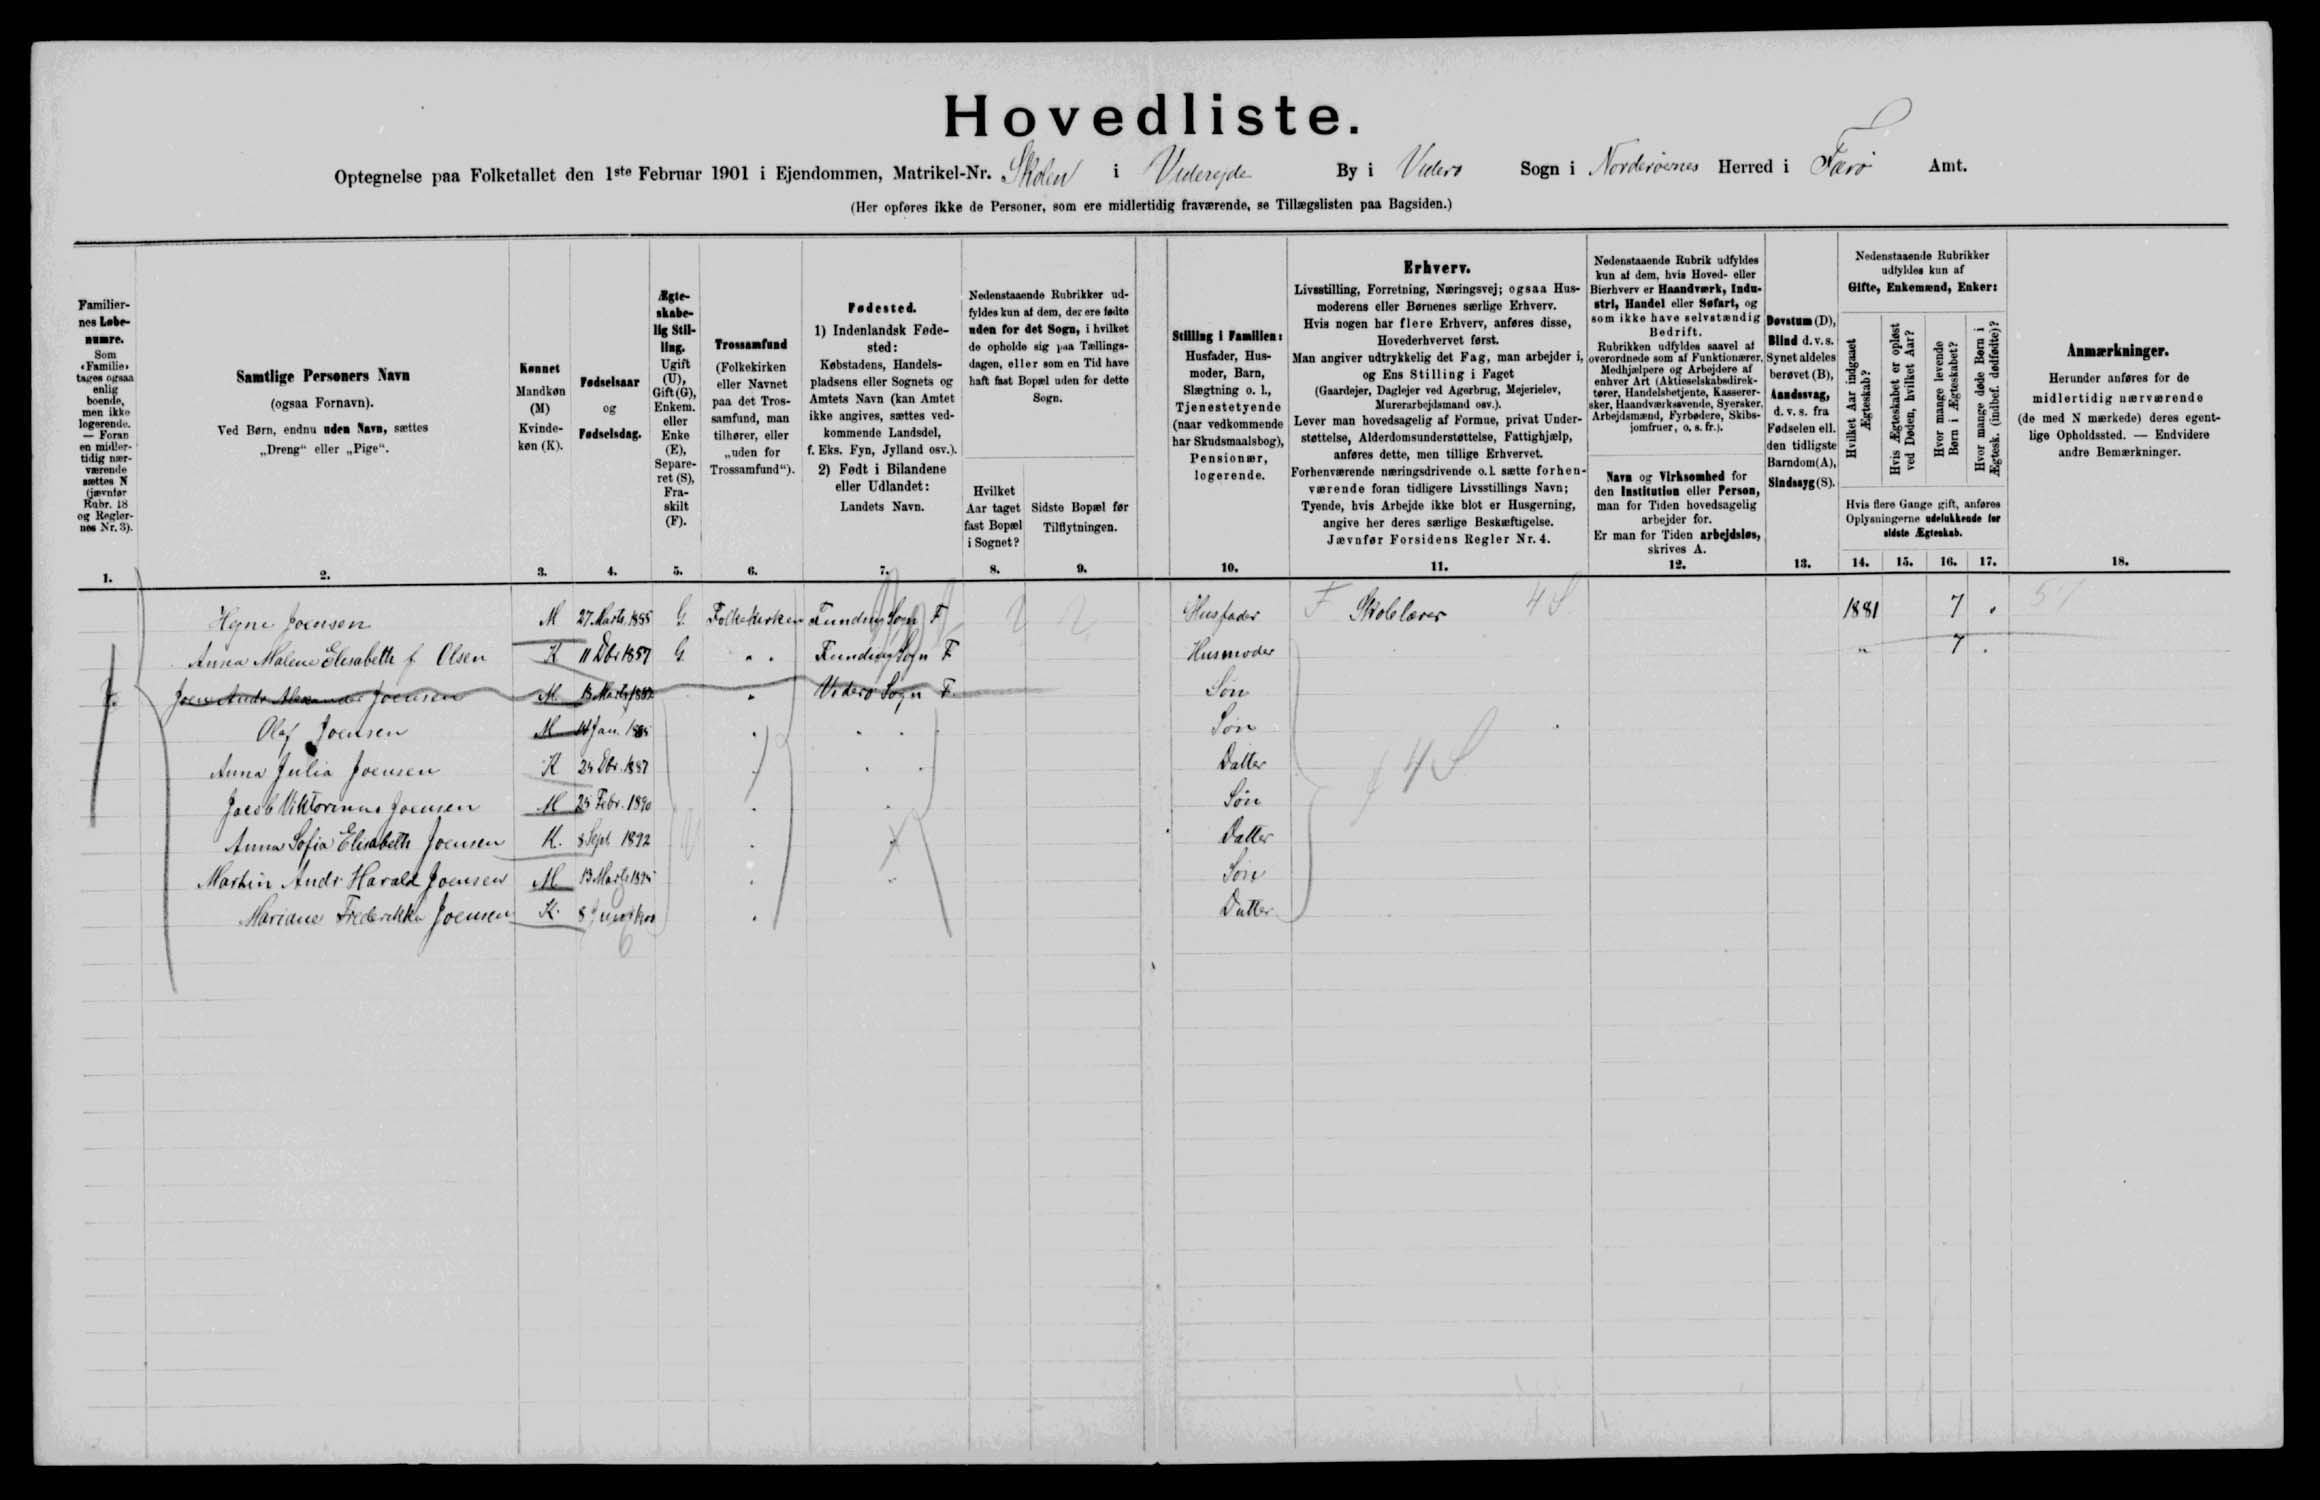 Hovedliste.
Optegnelse paa Folketallet den 1ste Februar 1901 i Ejendommen, Matrikel-Nr. Skolen i Viderejde By i Viderø Sogn i Norderøernes Herred i Færø Amt.
(Her opføres ikke de Personer, som ere midlertidig fraværende, se Tillægslisten paa Bagsiden.)
Familier-
nes Løbe-
numre.
Som
«Familie»
tages ogsaa
enlig
boende,
men ikke
logerende.
— Foran
en midler-
tidig nær-
værende
sættes N
(jævnfør
Rubr. 18
og Regler-
nes Nr. 3).
1.
Samtlige Personers Navn
(ogsaa Fornavn).
Ved Børn, endnu uden Navn, sættes
„Dreng" eller „Pige".
2.
Kønnet
Mandkøn
(M)
Kvinde-
køn (K).
3.
Fødselsaar
og
Fødselsdag.
4.
Ægte-
skabe-
lig Stil-
ling.
Ugift
(U),
Gift (G),
Enkem.
eller
Enke
(E),
Separe-
ret (S),
Fra-
skilt
(F).
5.
Trossamfund
(Folkekirken
eller Navnet
paa det Tros-
samfund, man
tilhører, eller
„uden for
Trossamfund").
6.
Fødested.
1) Indenlandsk Føde-
sted:
Købstadens, Handels-
pladsens eller Sognets og
Amtets Navn (kan Amtet
ikke angives, sættes ved-
kommende Landsdel,
f. Eks. Fyn, Jylland osv.).
2) Født i Bilandene
eller Udlandet:
Landets Navn.
7.
Nedenstaaende Rubrikker ud-
fyldes kun af dem, der ere fødte
uden for det Sogn, i hvilket
de opholde sig paa Tællings-
dagen, eller som en Tid have
haft fast Bopæl uden for dette
Sogn.
Hvilket
Aar taget
fast Bopæl
i Sognet?
8.
Sidste Bopæl før
Tilflytningen.
9.
Stilling i Familien:
Husfader, Hus-
moder, Barn,
Slægtning o. l.,
Tjenestetyende
(naar vedkommende
har Skudsmaalsbog),
Pensionær,
logerende.
10.
Erhverv.
Livsstilling, Forretning, Næringsvej; ogsaa Hus-
moderens eller Børnenes særlige Erhverv.
Hvis nogen har flere Erhverv, anføres disse,
Hovederhvervet først.
Man angiver udtrykkelig det Fag, man arbejder i,
og Ens Stilling i Faget
(Gaardejer, Daglejer ved Agerbrug, Mejerielev,
Murerarbejdsmand osv.).
Lever man hovedsagelig af Formue, privat Under-
støttelse, Alderdomsunderstøttelse, Fattighjælp,
anføres dette, men tillige Erhvervet.
Forhenværende næringsdrivende o. l. sætte forhen-
værende foran tidligere Livsstillings Navn;
Tyende, hvis Arbejde ikke blot er Husgerning,
angive her deres særlige Beskæftigelse.
Jævnfør Forsidens Regler Nr. 4.
11.
Nedenstaaende Rubrik udfyldes
kun af dem, hvis Hoved- eller
Bierhverv er Haandværk, Indu-
stri, Handel eller Søfart, og
som ikke have selvstændig
Bedrift.
Rubrikken udfyldes saavel af
overordnede som af Funktionærer,
Medhjælpere og Arbejdere af
enhver Art (Aktieselskabsdirek-
tører, Handelsbetjente, Kasserer-
sker, Haandværkssvende, Syersker,
Arbejdsmænd, Fyrbødere, Skibs-
jomfruer, o. s. fr.).
Navn og Virksomhed for
den Institution eller Person,
man for Tiden hovedsagelig
arbejder for.
Er man for Tiden arbejdsløs,
skrives A.
12.
Døvstum (D),
Blind d. v. s.
Synet aldeles
berøvet (B),
Aandssvag,
d. v. s. fra
Fødselen ell.
den tidligste
Barndom (A),
Sindssyg (S).
13.
Nedenstaaende Rubrikker
udfyldes kun af
Gifte, Enkemænd, Enker:
Hvilket Aar indgaaet
Ægteskab?
Hvis Ægteskabet er opløst
ved Døden, hvilket Aar?
Hvor mange levende
Børn i Ægteskabet?
Hvor mange døde Børn i
Ægtesk. (indbef. dødfødte)?
Hvis flere Gange gift, anføres
Oplysningerne udelukkende for
sidste Ægteskab.
14. 15. 16. 17.
Anmærkninger.
Herunder anføres for de
midlertidig nærværende
(de med N mærkede) deres egent-
lige Opholdssted. — Endvidere
andre Bemærkninger.
18.
Hejne Joensen M 27 Marts 1855 G. Folkekirken Funding Sogn F Husfader F Skolelærer 4 S 1881 7 .
Anna Malene Elisabeth f Olsen K 11 Dbr 1857 G. " . Funding Sogn F Husmoder " 7 .
Joen Andr Alexander Joensen M 13 Marts 1882 " Viderø Sogn F Søn
Olaf Joensen M 14 Jan. 1885 . . . Søn
Anna Julia Joensen K 24 Dbr. 1887 . . . Datter 4 S
Jacob Viktorinus Joensen M 25 Febr. 1890 . . Søn
Anna Sofia Elisabeth Joensen K. 8 Sept 1892 . Datter
Martin Andr Harald Joensen M 13 Marts 1895 . " Søn
Mariane Frederikka Joensen K. 8 Juni 1900 . Datter
6